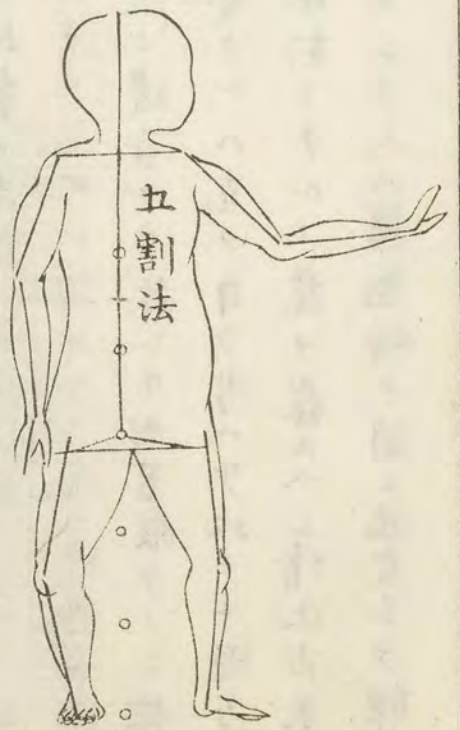 五割法